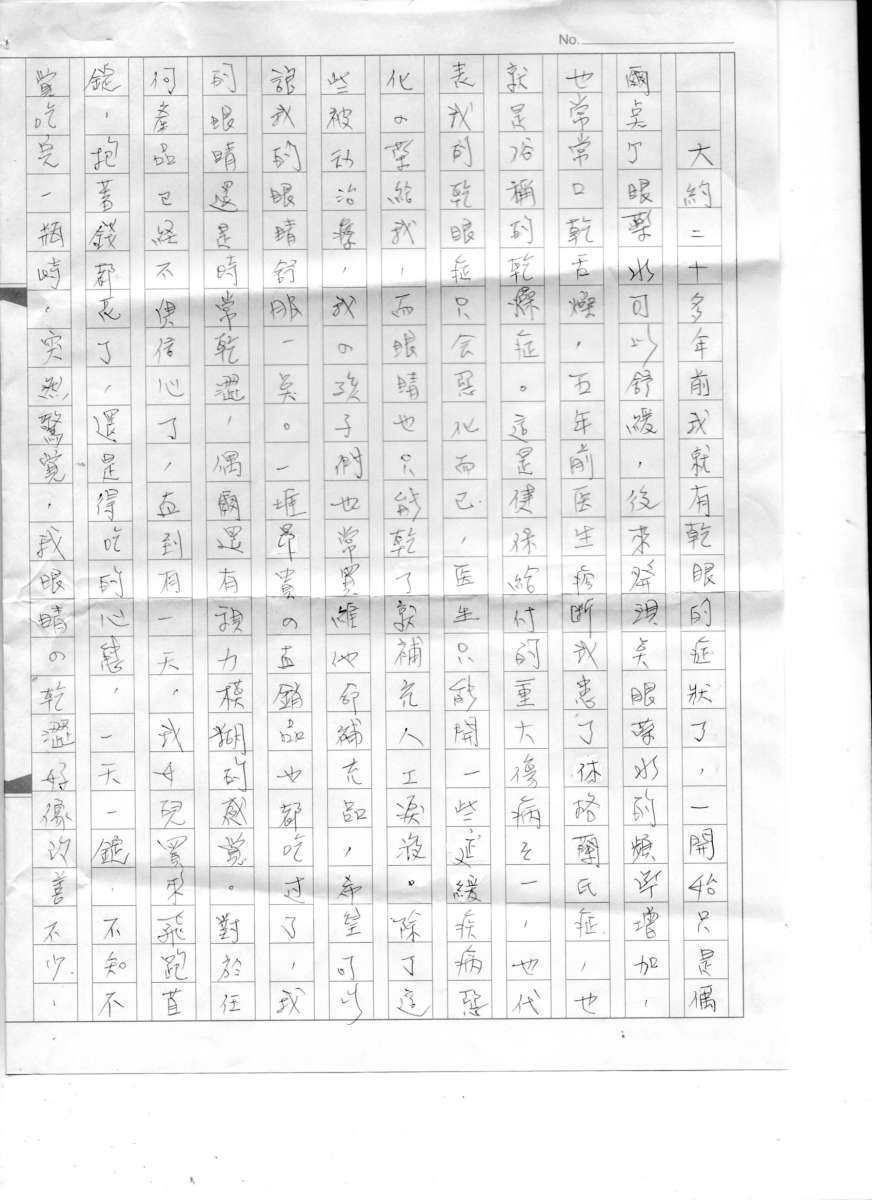 No.
大約二十多年前我就有乾眼的症狀了，一開始只是偶
爾点了眼藥水可以舒緩，後來發現点眼藥水的頻率增加，
也常常口乾舌燥，五年前医生病断我患了休格蘭氏症，也
就是俗稱的乾燥症。這是健保給付的重大傷病之一，也代
表我的乾眼症只会惡化而已，医生只能開一些延緩疾病惡
化の藥給我，而眼睛也只能乾了就補充人工淚液。除了這
些被动治療，我の孩子們也常買維他命補充品，希望可以
讓我的眼睛舒服一点。一堆昂貴の直銷品也都吃过了，我
的眼睛還是時常乾澀，偶爾還有視力模糊的感覺。對於任
何產品已経不俱信心了，直到有一天，我女兒買來飛跑苜
錠，抱著錢都花了，還是得吃的心態，一天一錠，不知不
覚吃完一瓶時，突然驚覺，我眼睛の乾澀好像改善不少，